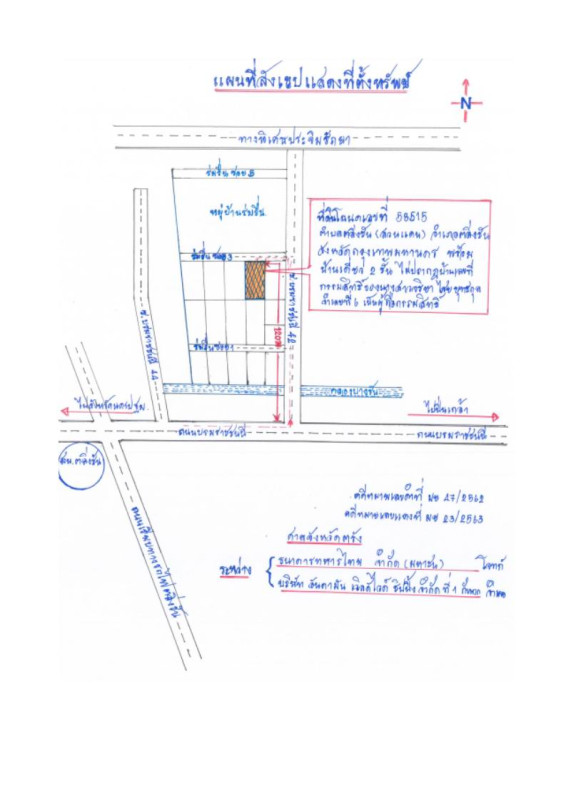 แผนที่สังเขปแสดงที่ตั้งทรัพย์
N
ทางพิเศษประจิมรัถยา
ร่มรื่น ซอย 5
หมู่บ้านร่มรื่น
ที่ดินโฉนดเลขที่ 58515
ตำบลตลิ่งชัน (สวนแดน) อำเภอตลิ่งชัน
จังหวัดกรุงเทพมหานคร พร้อม
บ้านเดี่ยว 2 ชั้น ไม่ปรากฏบ้านเลขที่
กรรมสิทธิ์ของนางสาวปริชา
จำเลยที่ 6 เป็นผู้ถือกรรมสิทธิ์
ร่มรื่น ซอย 3
ซ.บรมราชชนนี 42
ซ.บรมราชชนนี 44
ร่มรื่น ซอย 1
คลองบางขัน
ไปปิ่นเกล้า
ถนนบรมราชชนนี
ถนนบรมราชชนนี
สน.ตลิ่งชัน
ถนนเลียบทางรถไฟตลิ่งชัน
คดีหมายเลขดำที่ ผบ 27/2562
คดีหมายเลขแดงที่ ผบ 23/2563
ศาลจังหวัดตรัง
ระหว่าง
ธนาคารทหารไทย จำกัด (มหาชน) โจทก์
บริษัท อันดามัน เวิลด์ไวด์ ชิปปิ้ง จำกัด ที่ 1 กับพวก จำเลย